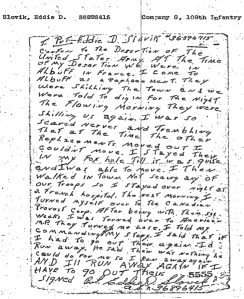 Slovik, Eddie D. 36896415 Company G, 109th Infantry
I Pvt. Eddie D. Slovik #36896415
Confess to the Desertion of the
United States Army. At the time
of my Desertion we were in
Albuff in France. I come to
Albuff as a Replacement. They
were shilling the town and we
were told to dig in for the night
The flowing morning they were
shilling us again. I was so
scared nerves and trembling
that at the time the other
Replacements moved out I
couldn't move. I stayed there
in my fox hole till it was quite
and I was able to move. I then
walked in town. Not seeing any of
our troops so I stayed over night at
a French hospital. The next morning I
turned myself over to the Canadian
Provost Corp. After being with them six
weeks I was turned over to American
M.P. They turned me lose. I told my
commanding my story. I said that if
I had to go out there again Id
Run away. He said their was nothing he
could do for me so I ran away again
AND I'LL RUN AWAY AGAIN IF I
HAVE TO GO OUT THEIR
Signed Pvt. Eddie D. Slovik
A.S.N. 36896415